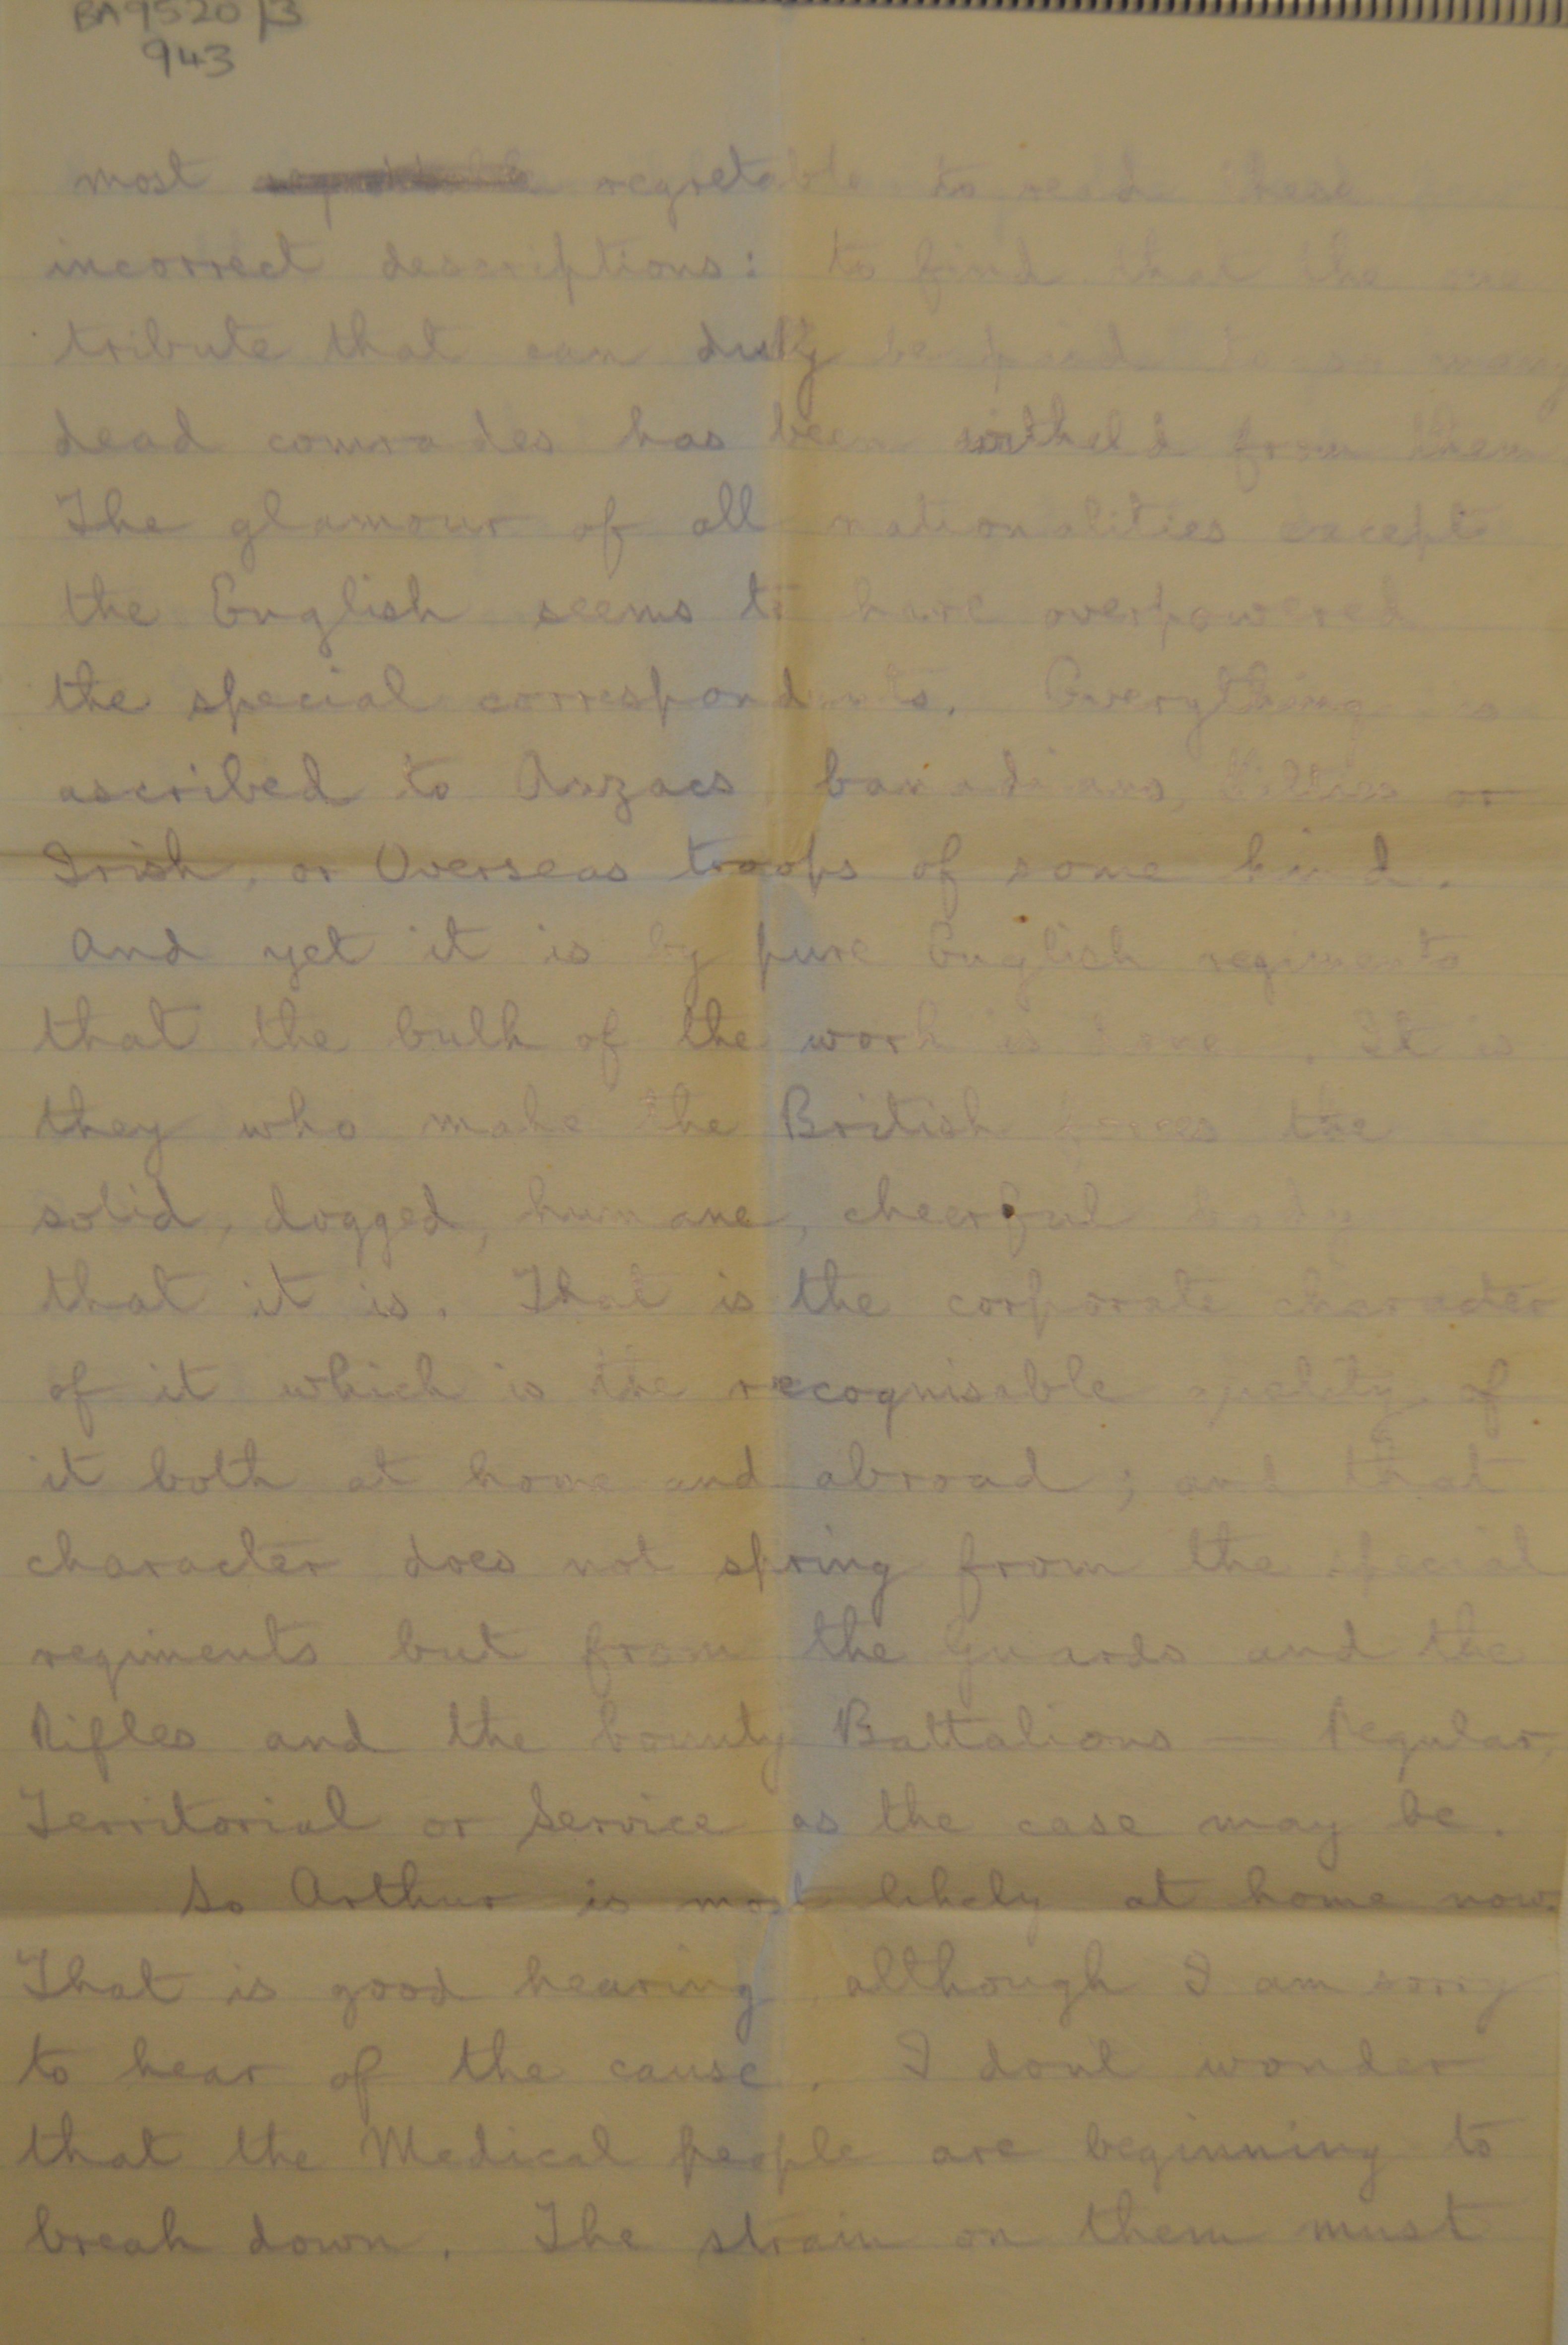 BA9520/3
943
most regretable to read these
incorrect descriptions: to find that the one
tribute that can duly be paid to so many
dead comrades has been witheld from them
The glamour of all nationalities except
the English seems to have overpowered
the special correspondents. Everything is
ascribed to Anzacs Canadians, Kilties or
Irish, or Overseas troops of some kind.
And yet it is by pure English regiments
that the bulk of the work is done. It is
they who make the British forces the
solid, dogged, humane, cheerful body
that it is. That is the corporate character
of it which is the recognisable quality of
it both at home and abroad; and that
character does not spring from the special
regiments but from the Guards and the
Rifles and the County Battalions — Regular,
Territorial or Service as the case may be.
So Arthur is most likely at home now.
That is good hearing, although I am sorry
to hear of the cause. I dont wonder
that the Medical people are beginning to
break down. The strain on them must